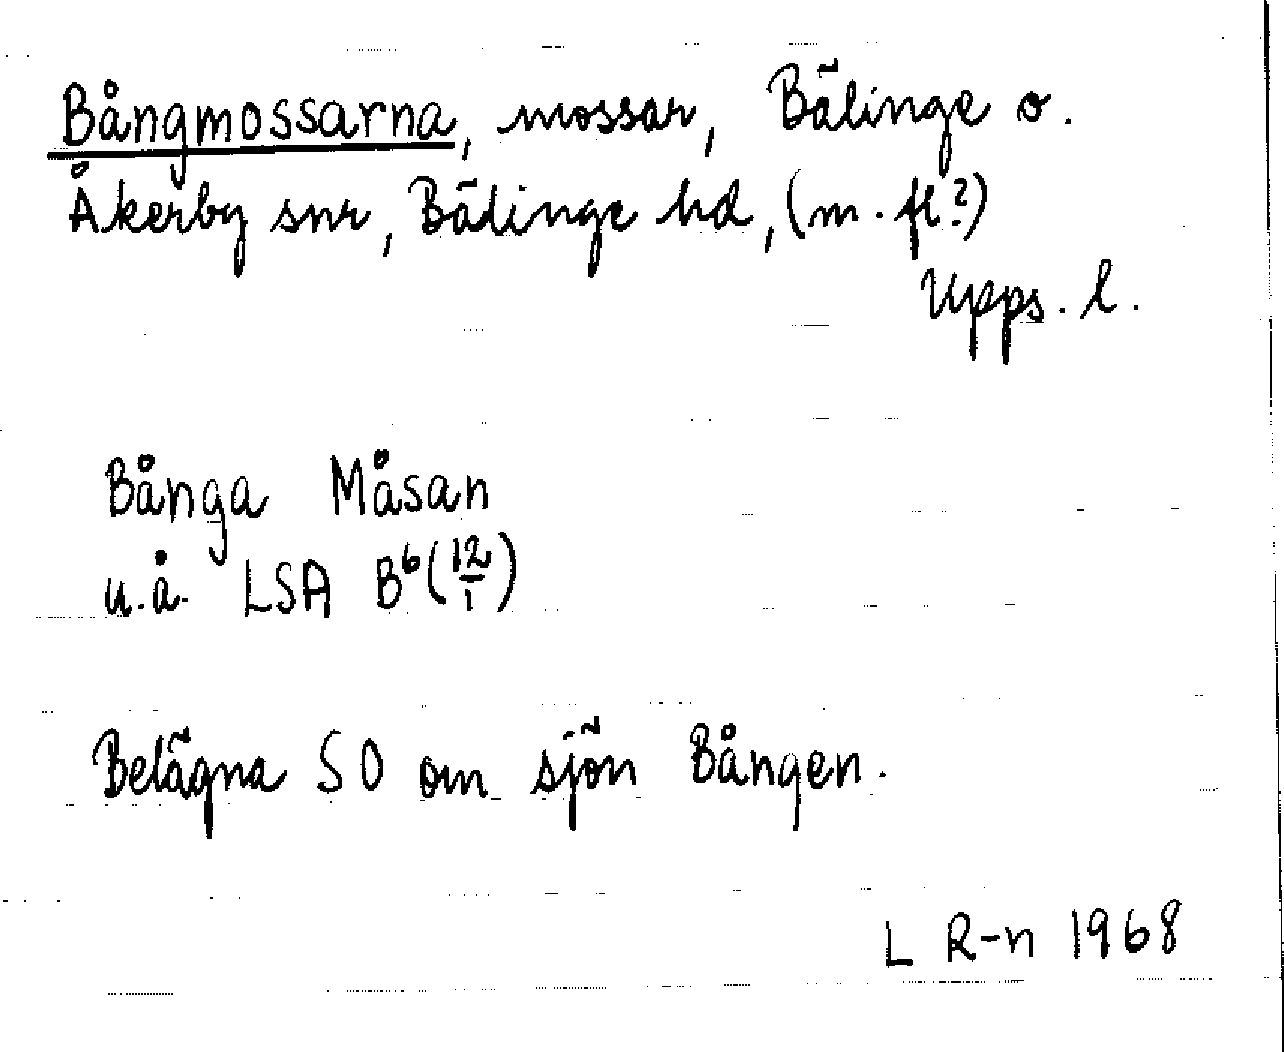 Bångmossarna, mossar, Bälinge o.
Åkerby snr, Bälinge hd, (m. fl?)
Upps. l.
Bånga Måsan
u.å. LSA B⁶(12/1)
Belägna SO om sjön Bången.
L R-n 1968